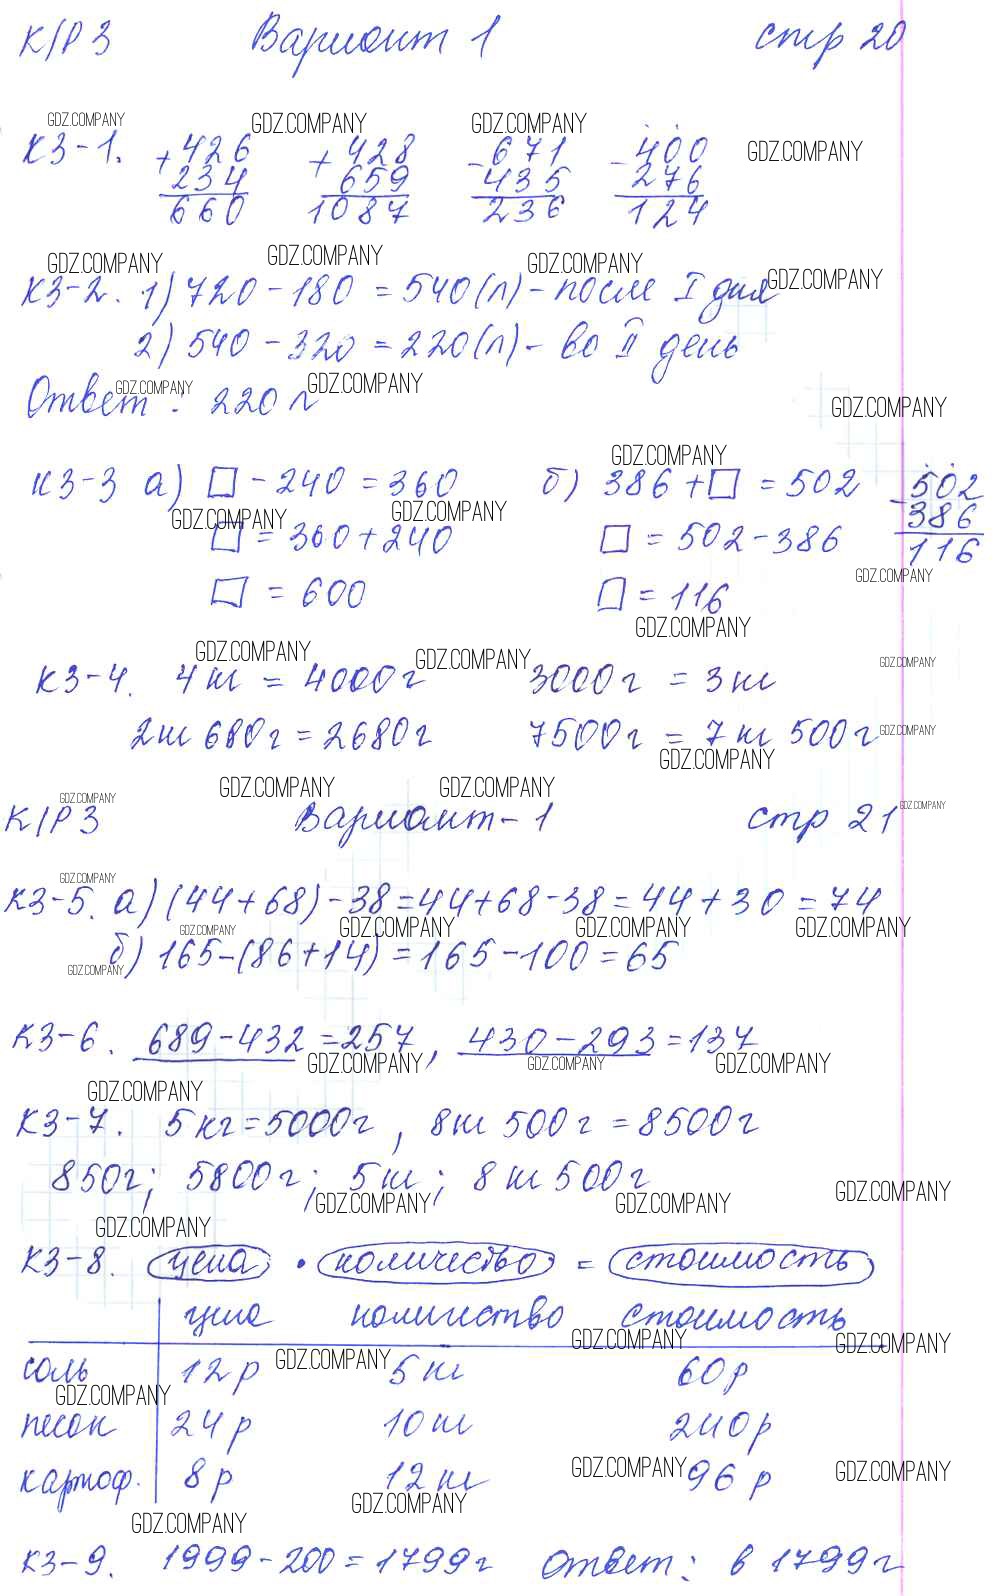 К/Р 3 Вариант 1 стр 20
GDZ.COMPANY GDZ.COMPANY GDZ.COMPANY GDZ.COMPANY
К3-1. + 426 + 428 - 671 - 400
234 659 435 276
660 1087 236 124
GDZ.COMPANY GDZ.COMPANY GDZ.COMPANY GDZ.COMPANY
К3-2. 1) 720 - 180 = 540 (л) - после I дня
2) 540 - 320 = 220 (л) - во II день
GDZ.COMPANY GDZ.COMPANY
Ответ: 220 л
GDZ.COMPANY
GDZ.COMPANY
К3-3 а) □ - 240 = 360 б) 386 + □ = 502 - 502
386
116
GDZ.COMPANY GDZ.COMPANY
□ = 360 + 240 □ = 502 - 386
GDZ.COMPANY
□ = 600 □ = 116
GDZ.COMPANY
GDZ.COMPANY GDZ.COMPANY GDZ.COMPANY
К3-4. 4 кг = 4000 г 3000 г = 3 кг
2 кг 680 г = 2680 г 7500 г = 7 кг 500 г
GDZ.COMPANY
GDZ.COMPANY
GDZ.COMPANY GDZ.COMPANY GDZ.COMPANY GDZ.COMPANY
К/Р 3 Вариант - 1 стр 21
GDZ.COMPANY
К3-5. а) (44 + 68) - 38 = 44 + 68 - 38 = 44 + 30 = 74
GDZ.COMPANY GDZ.COMPANY GDZ.COMPANY GDZ.COMPANY
б) 165 - (86 + 14) = 165 - 100 = 65
GDZ.COMPANY
К3-6. 689 - 432 = 257, 430 - 293 = 137
GDZ.COMPANY GDZ.COMPANY GDZ.COMPANY
GDZ.COMPANY
К3-7. 5 кг = 5000 г, 8 кг 500 г = 8500 г
850 г; 5800 г; 5 кг; 8 кг 500 г
GDZ.COMPANY GDZ.COMPANY GDZ.COMPANY
GDZ.COMPANY
К3-8. цена · количество = стоимость
цена количество стоимость
GDZ.COMPANY GDZ.COMPANY
соль 12 р 5 кг 60 р
GDZ.COMPANY
GDZ.COMPANY
песок 24 р 10 кг 240 р
картоф. 8 р 12 кг 96 р
GDZ.COMPANY GDZ.COMPANY
GDZ.COMPANY
GDZ.COMPANY
К3-9. 1999 - 200 = 1799 г Ответ: в 1799 г